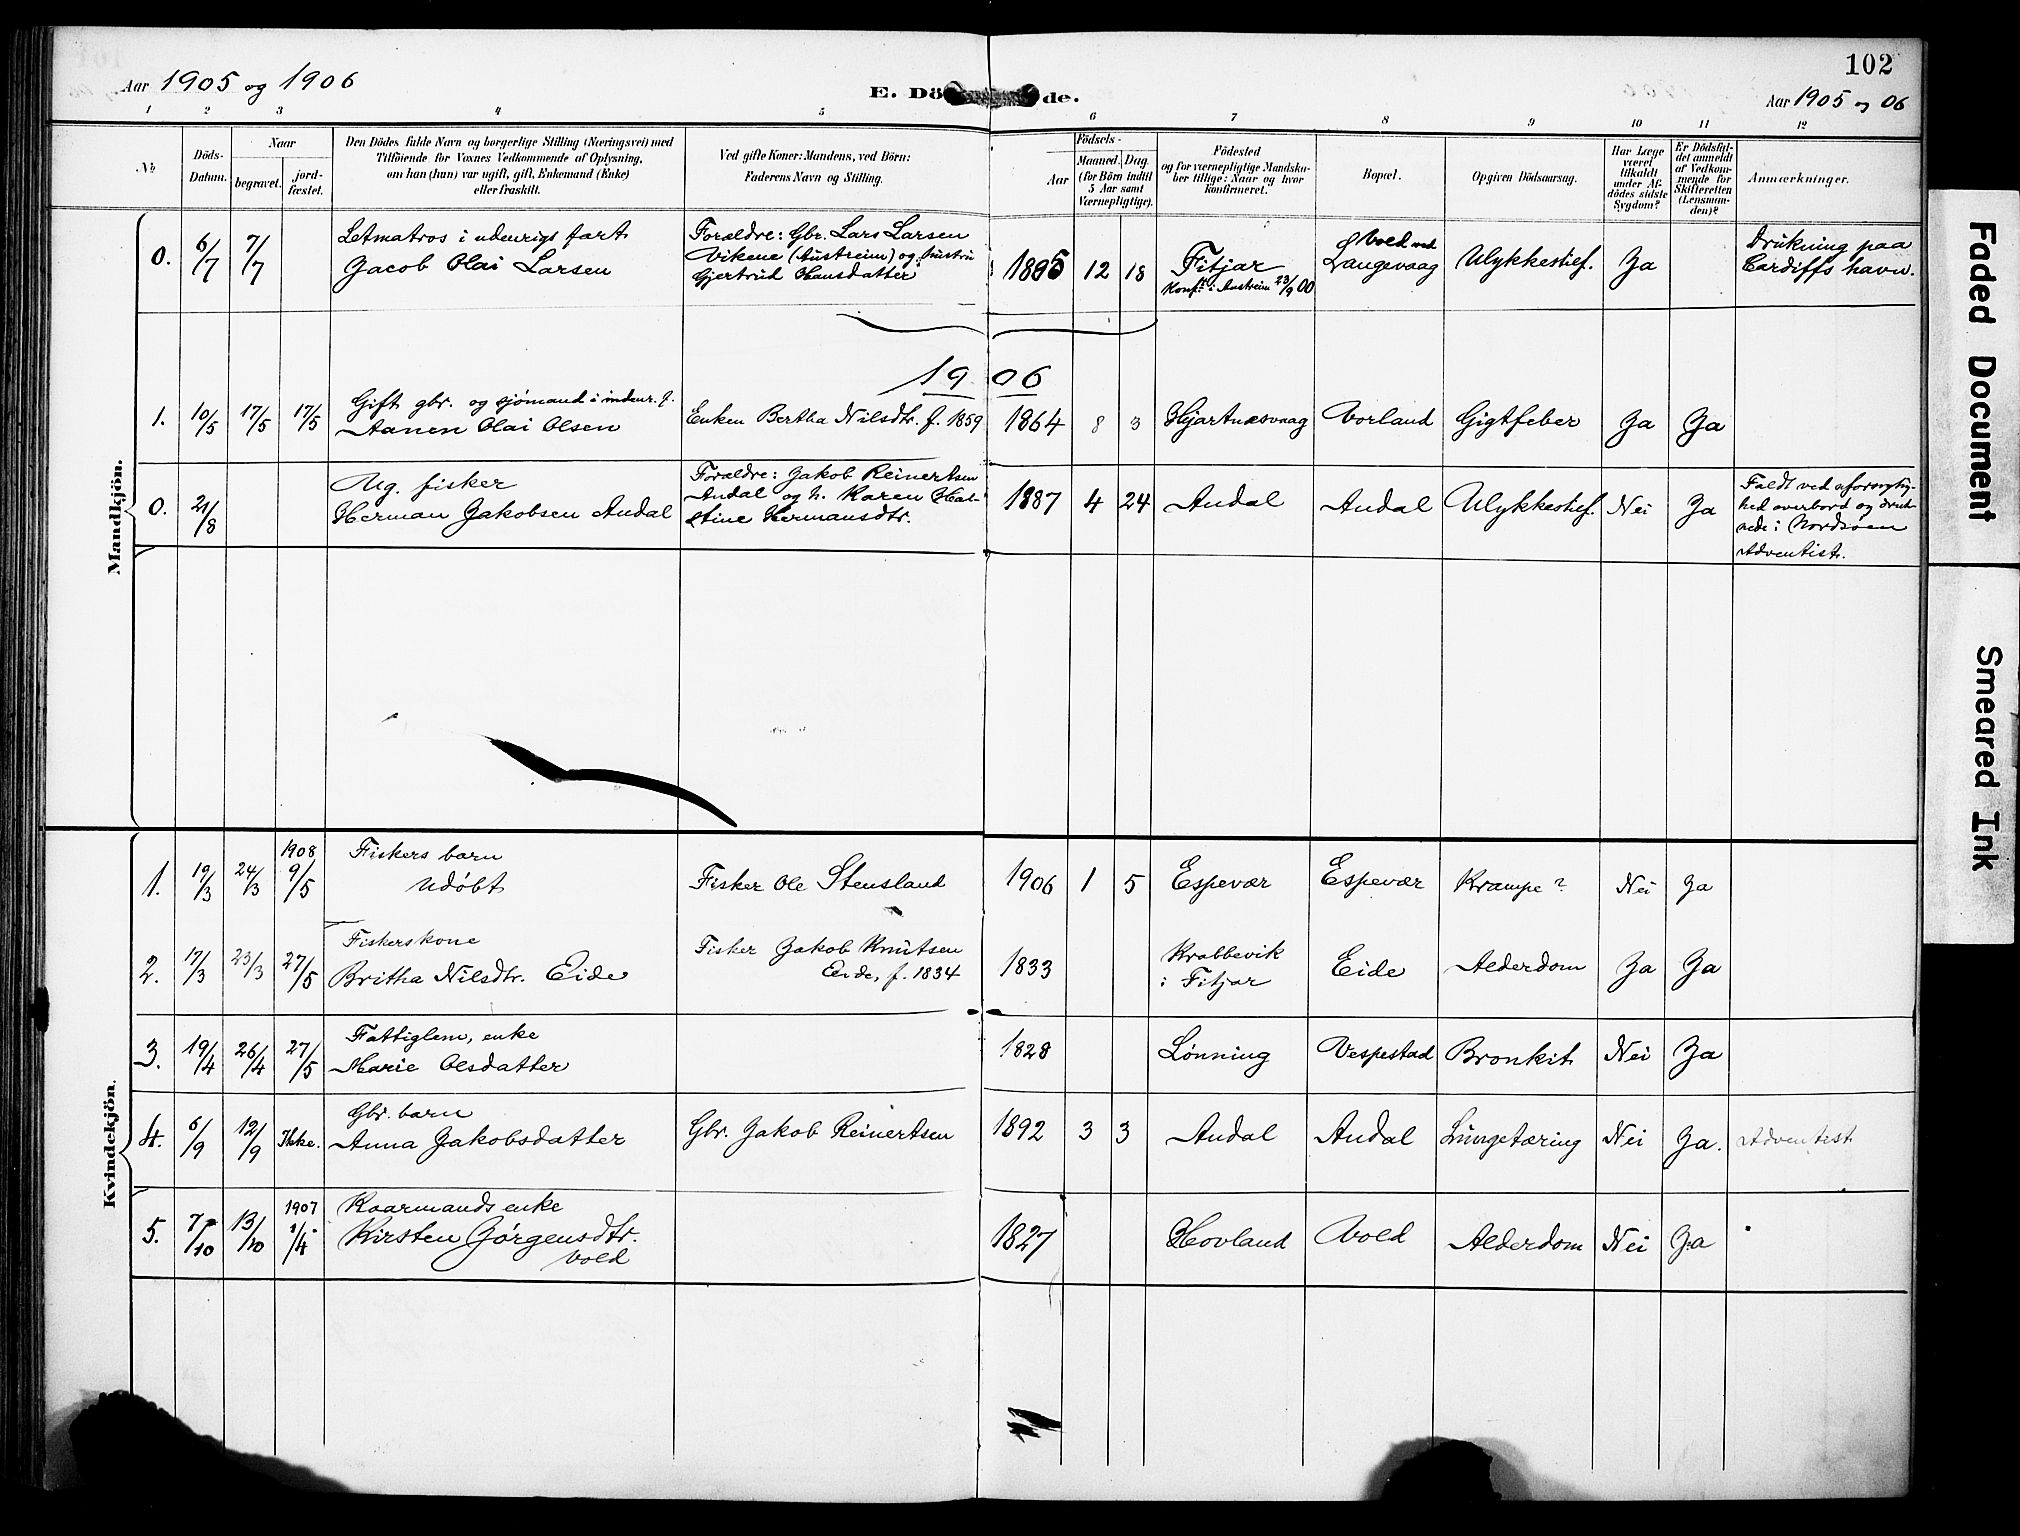 Aar 1905 og 1906
E. Dö de.
102
Aar 1905 og 06
1 2 3 4 5 6 7 8 9 10 11 12
No
Döds-
Datum.
Naar
begravet.
jord-
fæstet.
Den Dödes fulde Navn og borgerlige Stilling (Næringsvei) med
Tilföiende for Voxnes Vedkommende af Oplysning,
om han (hun) var ugift, gift, Enkemand (Enke)
eller fraskilt.
Ved gifte Koner: Mandens, ved Börn:
Faderens Navn og Stilling.
Födsels-
Aar
Maaned. Dag.
(for Börn indtil
5 Aar samt
Værnepligtige).
Födested
og for værnepligtige Mandska-
ber tillige: Naar og hvor
konfirmeret.
Bopæl.
Opgiven Dödsaarsag.
Har Læge
været
tilkaldt
under Af-
dödes sidste
Sygdom?
Er Dödsfal-
det anmeldt
af Vedkom-
mende for
Skifteretten
(Lensman-
den)?
Anmærkninger.
Mandkjön.
0. 6/7 7/7
Letmatros i udenrigs fart
Jacob Olai Larsen
Forældre: Gbr. Lars Larsen
Vikene (Austreim) og hustru
Gjertrud Hansdatter
1885 12 18
Fitjar
Konf. i Austreim 23/9 00
Vold ved
Langevaag
Ulykkestilf.
Ja
Drukning paa
Cardiffs havn.
1906
1. 10/5 17/5 17/5
Gift gbr. og sjömand i indenr. f.
Aanen Olai Olsen
Enken Bertha Nilsdtr. f. 1859
1864 8 3
Hjartnæsvaag
Vorland
Gigtfeber
Ja Ja
0. 21/8
Ug. fisker
Herman Jakobsen Andal
Forældre: Jakob Reinertsen
Andal og h. Karen
stine Hermansdtr.
1887 4 24
Andal Andal Ulykkestilf. Nei Ja
Faldt ved uforsigtig-
hed overbord og druk-
nede i Nordsøen
Adventist.
Kvindekjön.
1. 19/3 24/3 1908 9/5
Fiskers barn
Udøbt
Fisker Ole Stensland
1906 1 5
Espevær Espevær Krampe? Nei Ja
2. 17/3 23/3 27/5
Fiskerskone
Britha Nilsdtr. Eide
Fisker Jakob Knutsen
Eide, f. 1834
1833
Krabbevik
i Fitjar
Eide Alderdom Ja Ja
3. 19/4 26/4 27/5
Fattiglem, enke
Marie Olsdatter
1828
Lønning Vespestad Bronkit Nei Ja
4. 6/9 12/9 Ikke.
Gbr. barn
Anna Jakobsdatter
Gbr. Jakob Reinertsen
1892 3 3
Andal Andal Lungetæring Nei Ja. Adventist
5. 7/10 13/10 1907 1/4
Kaarmands enke
Kirsten Jørgensdtr.
Vold
1827
Hovland Vold Alderdom Nei Ja
Faded Document
Smeared Ink